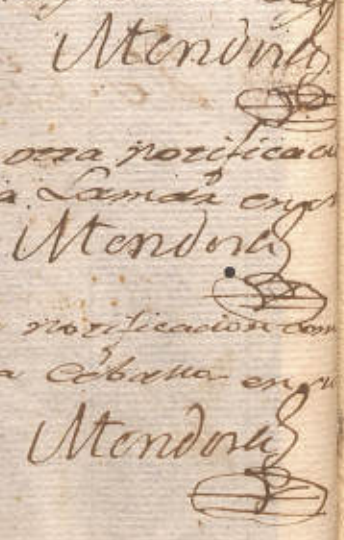 Mendoza
otra notificaci
a Lamar en
Mendoza
notificacion com
a Ceballos en
Mendoza